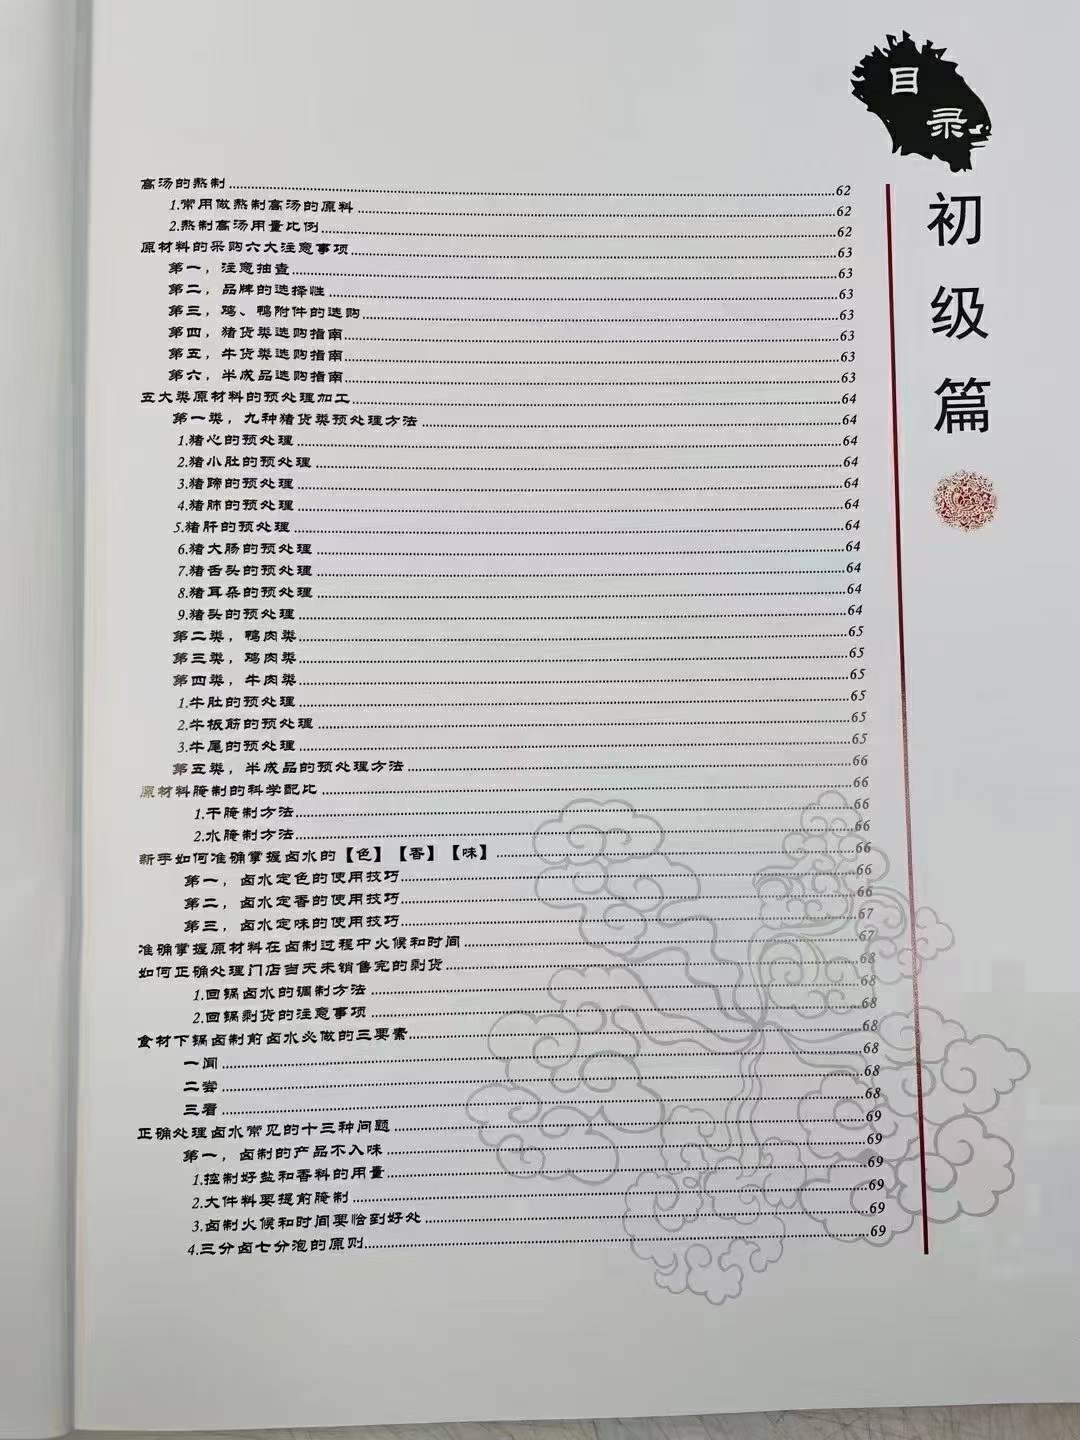 目
录
初
级
篇
高汤的熬制 62
1.常用做熬制高汤的原料 62
2.熬制高汤用量比例 62
原材料的采购六大注意事项 63
第一，注意抽查 63
第二，品牌的选择性 63
第三，鸡、鸭附件的选购 63
第四，猪货类选购指南 63
第五，牛货类选购指南 63
第六，半成品选购指南 63
五大类原材料的预处理加工 64
第一类，九种猪货类预处理方法 64
1.猪心的预处理 64
2.猪小肚的预处理 64
3.猪蹄的预处理 64
4.猪肺的预处理 64
5.猪肝的预处理 64
6.猪大肠的预处理 64
7.猪舌头的预处理 64
8.猪耳朵的预处理 64
9.猪头的预处理 64
第二类，鸭肉类 65
第三类，鸡肉类 65
第四类，牛肉类 65
1.牛肚的预处理 65
2.牛板筋的预处理 65
3.牛尾的预处理 65
第五类，半成品的预处理方法 66
原材料腌制的科学配比 66
1.干腌制方法 66
2.水腌制方法 66
新手如何准确掌握卤水的【色】【香】【味】 66
第一，卤水定色的使用技巧 66
第二，卤水定香的使用技巧 66
第三，卤水定味的使用技巧 67
准确掌握原材料在卤制过程中火候和时间 67
如何正确处理门店当天未销售完的剩货 68
1.回锅卤水的调制方法 68
2.回锅剩货的注意事项 68
食材下锅卤制前卤水必做的三要素 68
一闻 68
二尝 68
三看 68
正确处理卤水常见的十三种问题 69
第一，卤制的产品不入味 69
1.控制好盐和香料的用量 69
2.大件料要提前腌制 69
3.卤制火候和时间要恰到好处 69
4.三分卤七分泡的原则 69